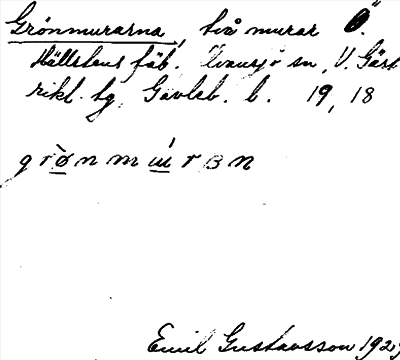 Grönmurarna, två murar Ö.
Hällstens fäb. Svansjö sn, V. Gäst
rikl. hg, Gävleb. l. 19, 18
grø̀nmúrɑn
Emil Gustavsson 192